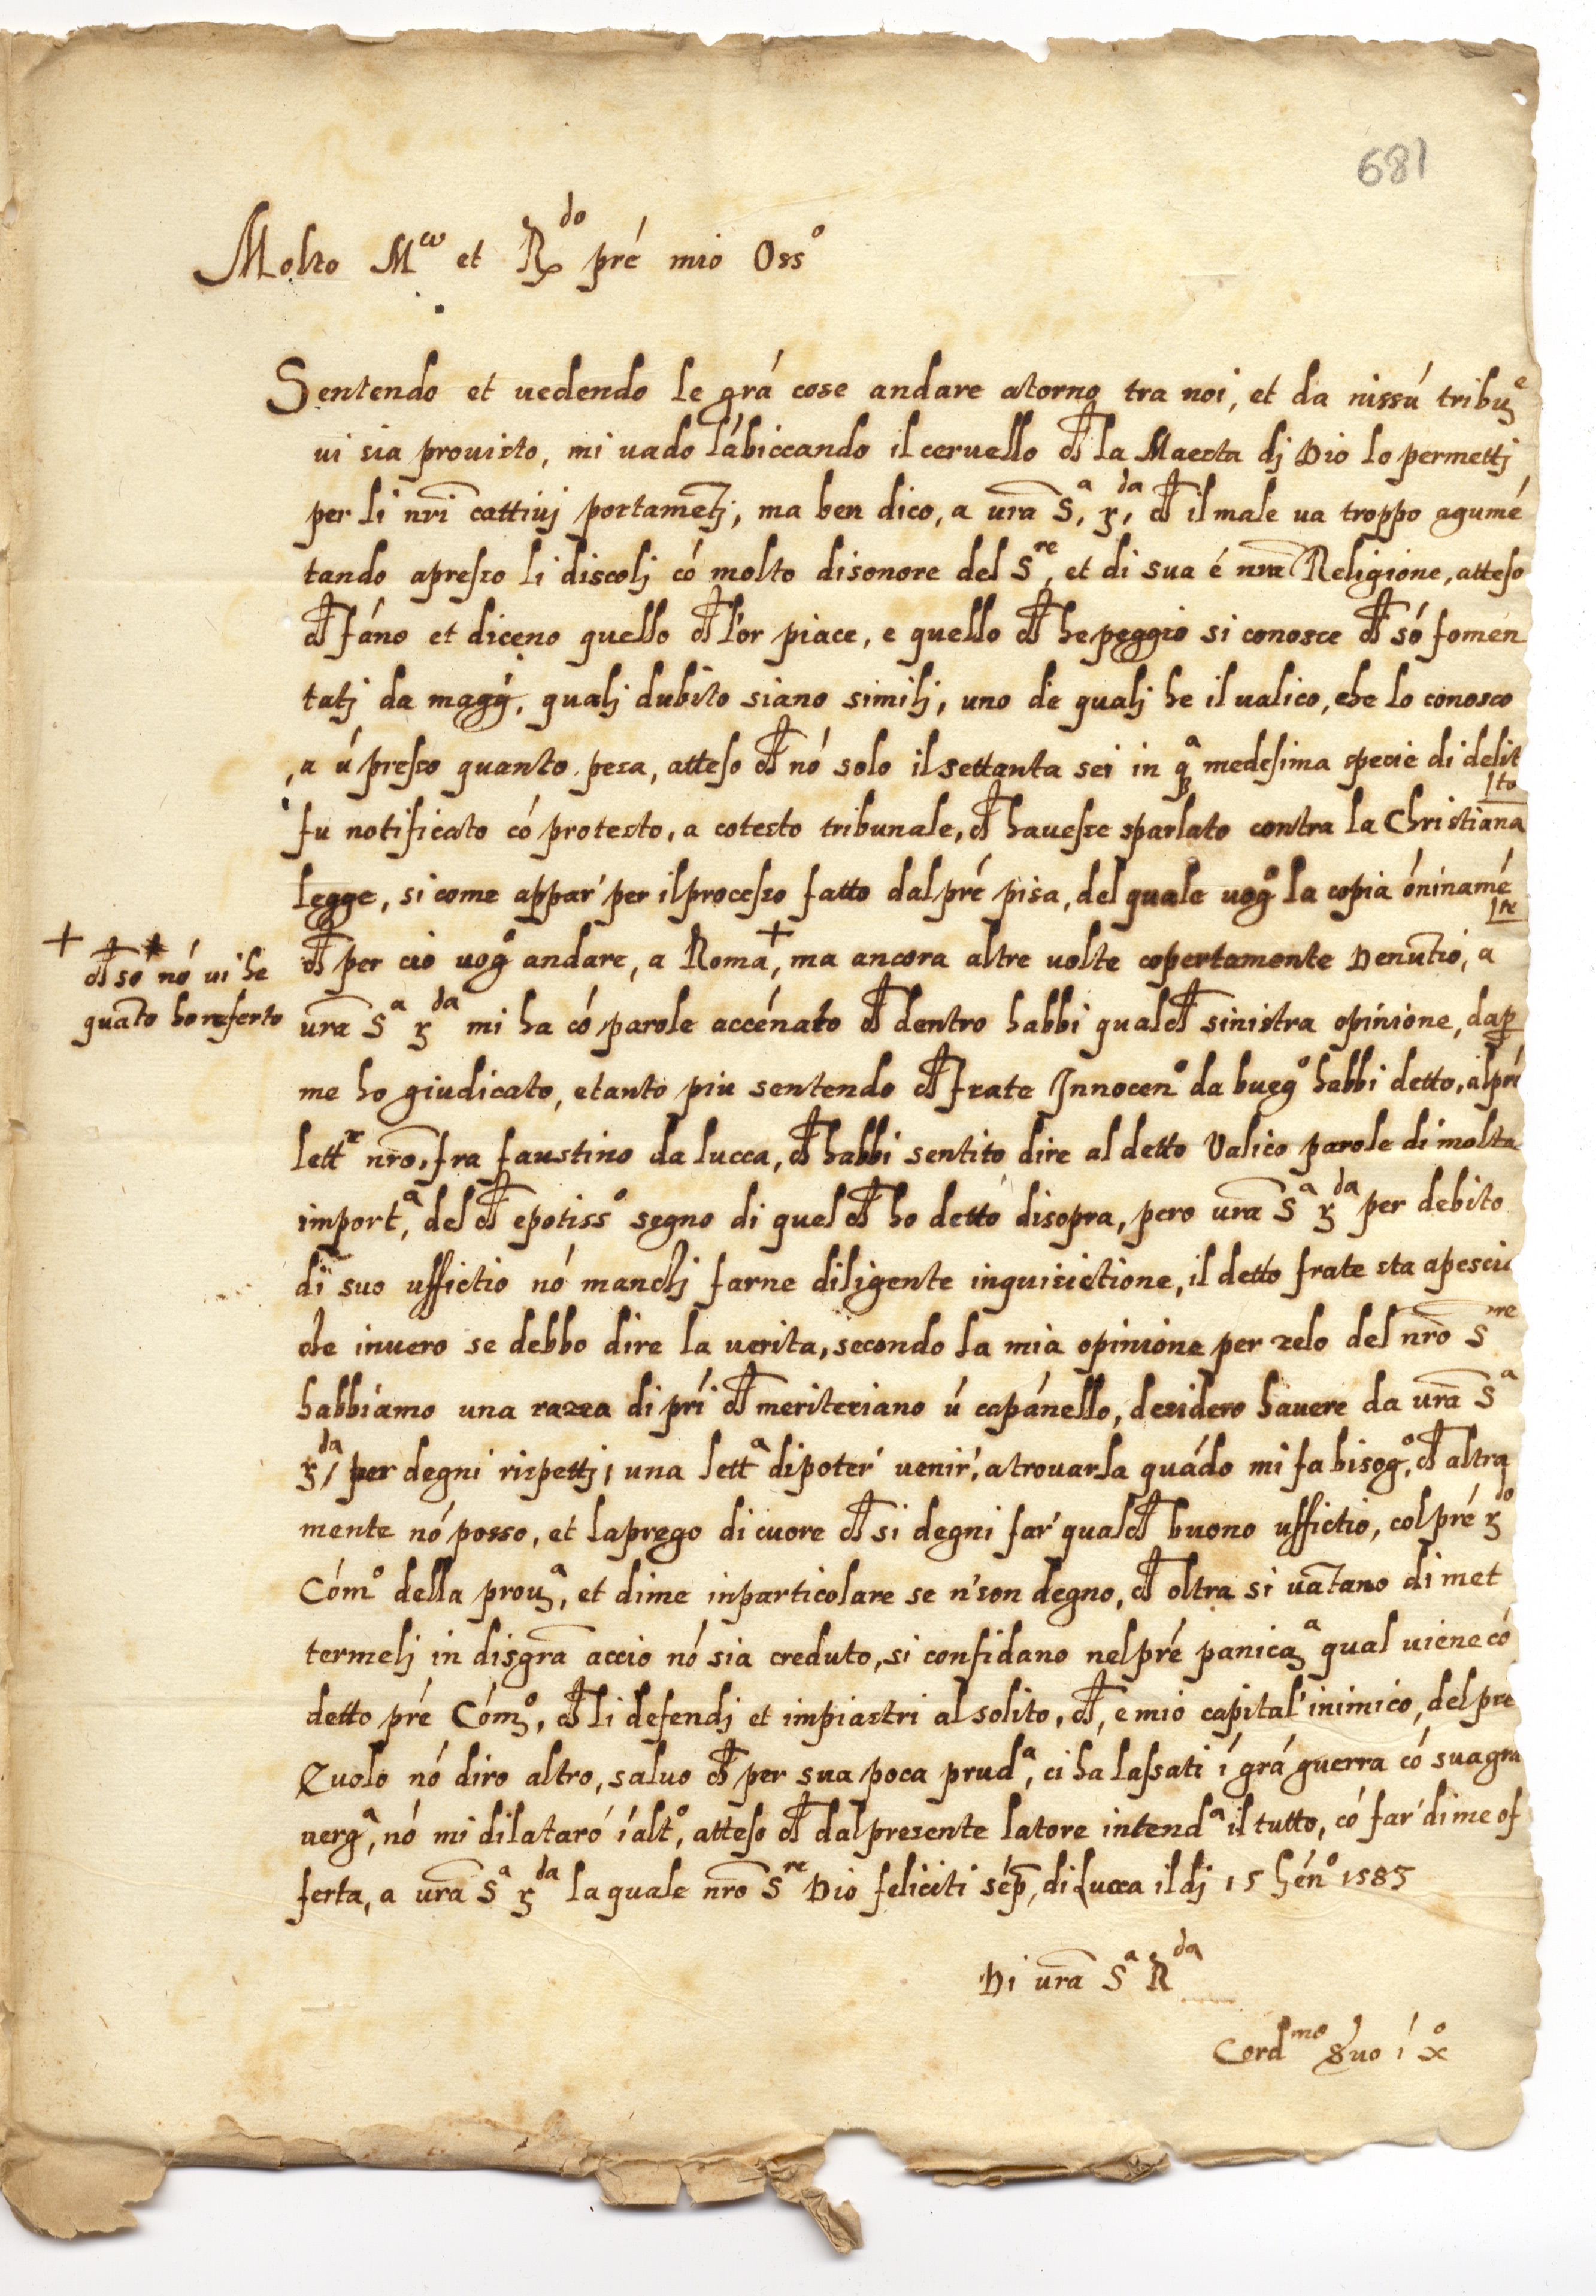 681
Molto M.co et R.do pré mio Oss.o
Sentendo et uedendo le grá cose andare atorno tra noi, et da nissú tribu.e
ui sia prouisto, mi uado lábiccando il ceruello ch la Maesta dj Dio lo permettj
per li nr̃i cattiuj portamẽtj, ma ben dico, a ur̃a S.a, r.da ch il male ua troppo agumé
tando apresso li discolj có molto disonore del S.re, et di sua é nr̃a Religione, atteso
ch fáno et diceno quello ch lor piace, e quello ch he peggio si conosce ch só fomen
tatj da magg.i, qualj dubito siano similj, uno de qualj he il ualico, che lo conosco
, a ú presso quanto pesa, atteso ch nó solo il settanta sei in q.a medesima specie di delit
to
fu notificato có protesto, a cotesto tribunale, ch hauesse sparlato contra la Christiana
legge, si come appar' per il processo fatto dal pré pisa, del quale uog.o la copia óninamé
te
ch per cio uog.o andare, a Roma +, ma ancora altre uolte copertamente Denũtio, a
+ ch so nó ui he
quãto ho referto
ur̃a S.a r.da mi ha có parole accénato ch dentro habbi qualch sinistra opinione, da p
me ho giudicato, etanto piu sentendo ch frate Innocen.o da bugg.o habbi detto, al pri
lett.r nr̃o, fra faustino da lucca, ch habbi sentito dire al detto Valico parole di molta
import.a, del ch epotiss.o segno di quel ch ho detto disopra, pero ur̃a S.a r.da per debito
di suo uffictio nó manchj farne diligente inquisictione, il detto frate sta apescia
che inuero se debbo dire la uerita, secondo la mia opinione per zelo del nr̃o S.re
habbiámo una razza di pr̃i ch meriteriano ú capánello, desidero hauere da ur̃a S.a
r.da, per degni rispettj, una lett.a dipoter' uenir', atrouarla quádo mi fa bisog.o, ch altra
mente nó posso, et la prego di cuore ch si degni far' qualch buono uffictio, col pré r.do
Cóm.o della prou.a, et dime inparticolare se n'son degno, ch oltra si uãtano di met
termelj in disgrãa accio nó sia creduto, si confidano nel pré panica.a qual uiene có
detto pré Cóm.o, ch li defendj et impiastri al solito, ch, e mio capital' inimico, del pre
Zuolo nó diro altro, saluo ch per sua poca prud.a, ci ha lassati í grá guerra có sua gra
uerg.a, nó mi dilataró í alt.o, atteso ch dal presente latore intend.a il tutto, có far' di me of
ferta, a ur̃a S.a r.da la quale nr̃o S.re Dio feliciti sép, di lucca il dj 15 Gén.o 1583
Di ur̃a S.a R.da
Cord.mo Suo í X.o